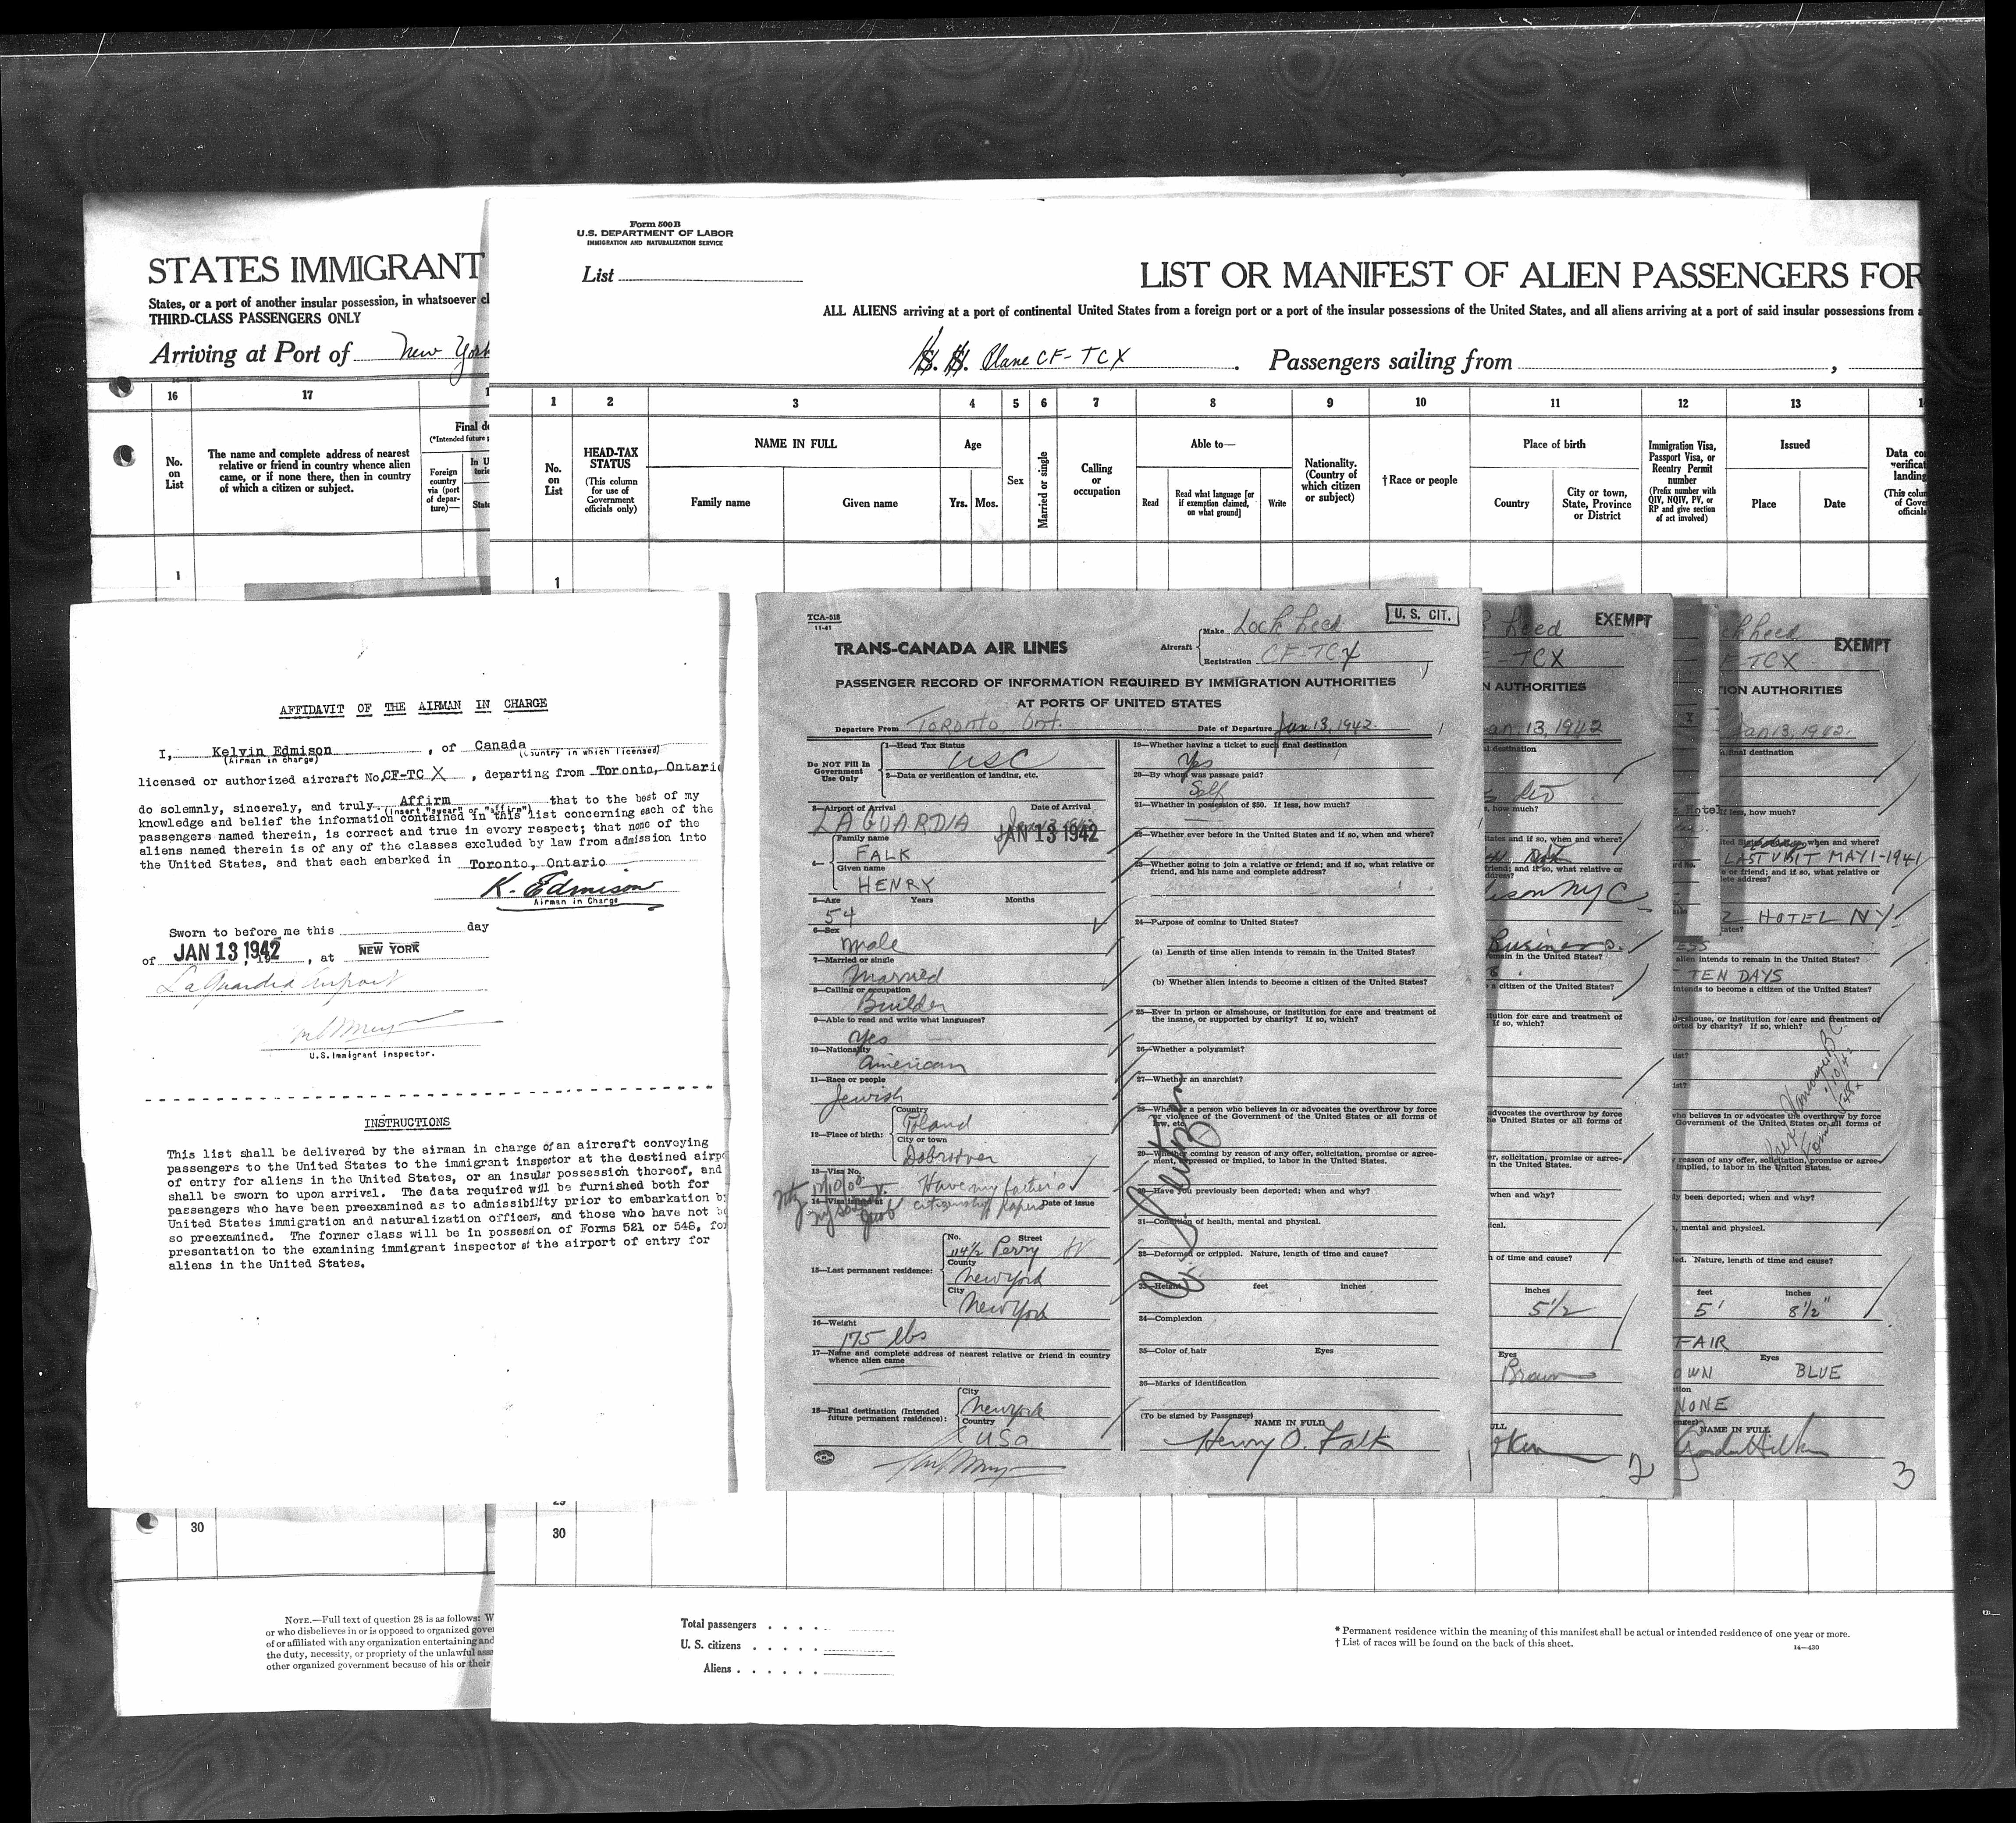 STATES IMMIGRANT
States, or a port of another insular possession, in whatsoever cl
THIRD-CLASS PASSENGERS ONLY
Arriving at Port of New York
16 17 1
No. on List
The name and complete address of nearest relative or friend in country whence alien came, or if none there, then in country of which a citizen or subject.
Final de
(*Intended future p
Foreign country via (port of departure)—
In U
torie
State
1
30
NOTE.—Full text of question 28 is as follows: W
or who disbelieves in or is opposed to organized gove
of or affiliated with any organization entertaining and
the duty, necessity, or propriety of the unlawful assa
other organized government because of his or their
Form 500 B
U.S. DEPARTMENT OF LABOR
IMMIGRATION AND NATURALIZATION SERVICE
List
LIST OR MANIFEST OF ALIEN PASSENGERS FOR
ALL ALIENS arriving at a port of continental United States from a foreign port or a port of the insular possessions of the United States, and all aliens arriving at a port of said insular possessions from a
S. S. Plane CF-TCX. Passengers sailing from ,
1 2 3 4 5 6 7 8 9 10 11 12 13 1
No. on List
HEAD-TAX STATUS
(This column for use of Government officials only)
NAME IN FULL
Family name Given name
Age
Yrs. Mos.
Sex
Married or single
Calling or occupation
Able to—
Read
Read what language [or if exemption claimed, on what ground]
Write
Nationality. (Country of which citizen or subject)
†Race or people
Place of birth
Country
City or town, State, Province or District
Immigration Visa, Passport Visa, or Reentry Permit number
(Prefix number with QIV, NQIV, PV, or RP and give section of act involved)
Issued
Place Date
Data co
verificat
landing
(This colum
of Gove
officials
1
30
Total passengers
U. S. citizens
Aliens
* Permanent residence within the meaning of this manifest shall be actual or intended residence of one year or more.
† List of races will be found on the back of this sheet.
14—430
AFFIDAVIT OF THE AIRMAN IN CHARGE
I, Kelvin Edmison, of Canada
(Airman in charge) (Country in which licensed)
licensed or authorized aircraft No. CF-TC X, departing from Toronto, Ontario
do solemnly, sincerely, and truly Affirm that to the best of my
(insert "swear" or "affirm")
knowledge and belief the information contained in this list concerning each of the
passengers named therein, is correct and true in every respect; that none of the
aliens named therein is of any of the classes excluded by law from admission into
the United States, and that each embarked in Toronto, Ontario
K. Edmison
Airman in Charge
Sworn to before me this day
of JAN 13 1942, at NEW YORK
La Guardia Airport
U.S. Immigrant Inspector.
INSTRUCTIONS
This list shall be delivered by the airman in charge of an aircraft conveying
passengers to the United States to the immigrant inspector at the destined airpo
of entry for aliens in the United States, or an insular possession thereof, and
shall be sworn to upon arrival. The data required will be furnished both for
passengers who have been preexamined as to admissibility prior to embarkation by
United States immigration and naturalization officers, and those who have not be
so preexamined. The former class will be in possession of Forms 521 or 548, for
presentation to the examining immigrant inspector at the airport of entry for
aliens in the United States.
TCA-518
11-41
TRANS-CANADA AIR LINES
Aircraft
Make Lockheed
Registration CF-TCX
U. S. CIT.
PASSENGER RECORD OF INFORMATION REQUIRED BY IMMIGRATION AUTHORITIES
AT PORTS OF UNITED STATES
Departure From Toronto, Ont. Date of Departure Jan 13, 1942
Do NOT Fill In Government Use Only
1—Head Tax Status
USC
2—Data or verification of landing, etc.
3—Airport of Arrival Date of Arrival
LAGUARDIA JAN 13 1942
4—
Family name
FALK
Given name
HENRY
5—Age Years Months
54
6—Sex
male
7—Married or single
Married
8—Calling or occupation
Builder
9—Able to read and write what languages?
Yes
10—Nationality
American
11—Race or people
Jewish
12—Place of birth:
Country
Poland
City or town
13—Visa No.
Have my father's
citizenship papers
14—Visa issued at Date of issue
15—Last permanent residence:
No. Street
114 1/2 Perry
County
New York
City
New York
16—Weight
175 lbs
17—Name and complete address of nearest relative or friend in country whence alien came
18—Final destination (Intended future permanent residence):
City
New York
Country
USA
19—Whether having a ticket to such final destination
Yes
20—By whom was passage paid?
Self
21—Whether in possession of $50. If less, how much?
22—Whether ever before in the United States and if so, when and where?
23—Whether going to join a relative or friend; and if so, what relative or friend, and his name and complete address?
24—Purpose of coming to United States?
(a) Length of time alien intends to remain in the United States?
(b) Whether alien intends to become a citizen of the United States?
25—Ever in prison or almshouse, or institution for care and treatment of the insane, or supported by charity? If so, which?
26—Whether a polygamist?
27—Whether an anarchist?
28—Whether a person who believes in or advocates the overthrow by force or violence of the Government of the United States or all forms of law, etc.
29—Whether coming by reason of any offer, solicitation, promise or agreement, expressed or implied, to labor in the United States.
30—Have you previously been deported; when and why?
31—Condition of health, mental and physical.
32—Deformed or crippled. Nature, length of time and cause?
33—Height feet inches
34—Complexion
35—Color of hair Eyes
36—Marks of identification
(To be signed by Passenger)
NAME IN FULL
Henry O. Falk
1
EXEMPT
TCX
N AUTHORITIES
an. 13, 1942
Business
inches
5 1/2
Eyes
Brown
2
EXEMPT
F-TCX
ION AUTHORITIES
Jan 13, 1942
LAST VISIT MAY 1-1941
HOTEL NY
TEN DAYS
feet inches
5' 8 1/2"
FAIR
Eyes
OWN BLUE
NONE
NAME IN FULL
3